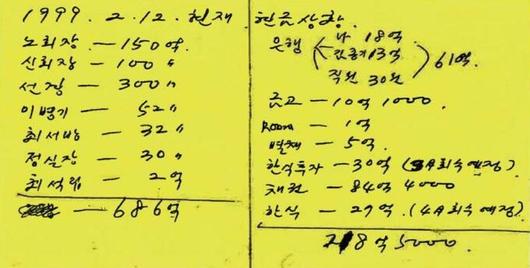 1999. 2. 12. 현재
노회장 — 150억.
신회장 — 100 〃
선장 — 300 〃
이병기 — 52 〃
최서방 — 32 〃
정실장 — 30 〃
최석립 — 2억
— 686억
현금상황.
은행 나 18억
13억
직원 30억
61억.
금고 — 10억 1000.
Room — 1억
별채 — 5억.
한식투자 — 30억 (3A회수예정)
채권 — 84억 4000
한식 — 27억. (4A회수예정)
218억 5000.